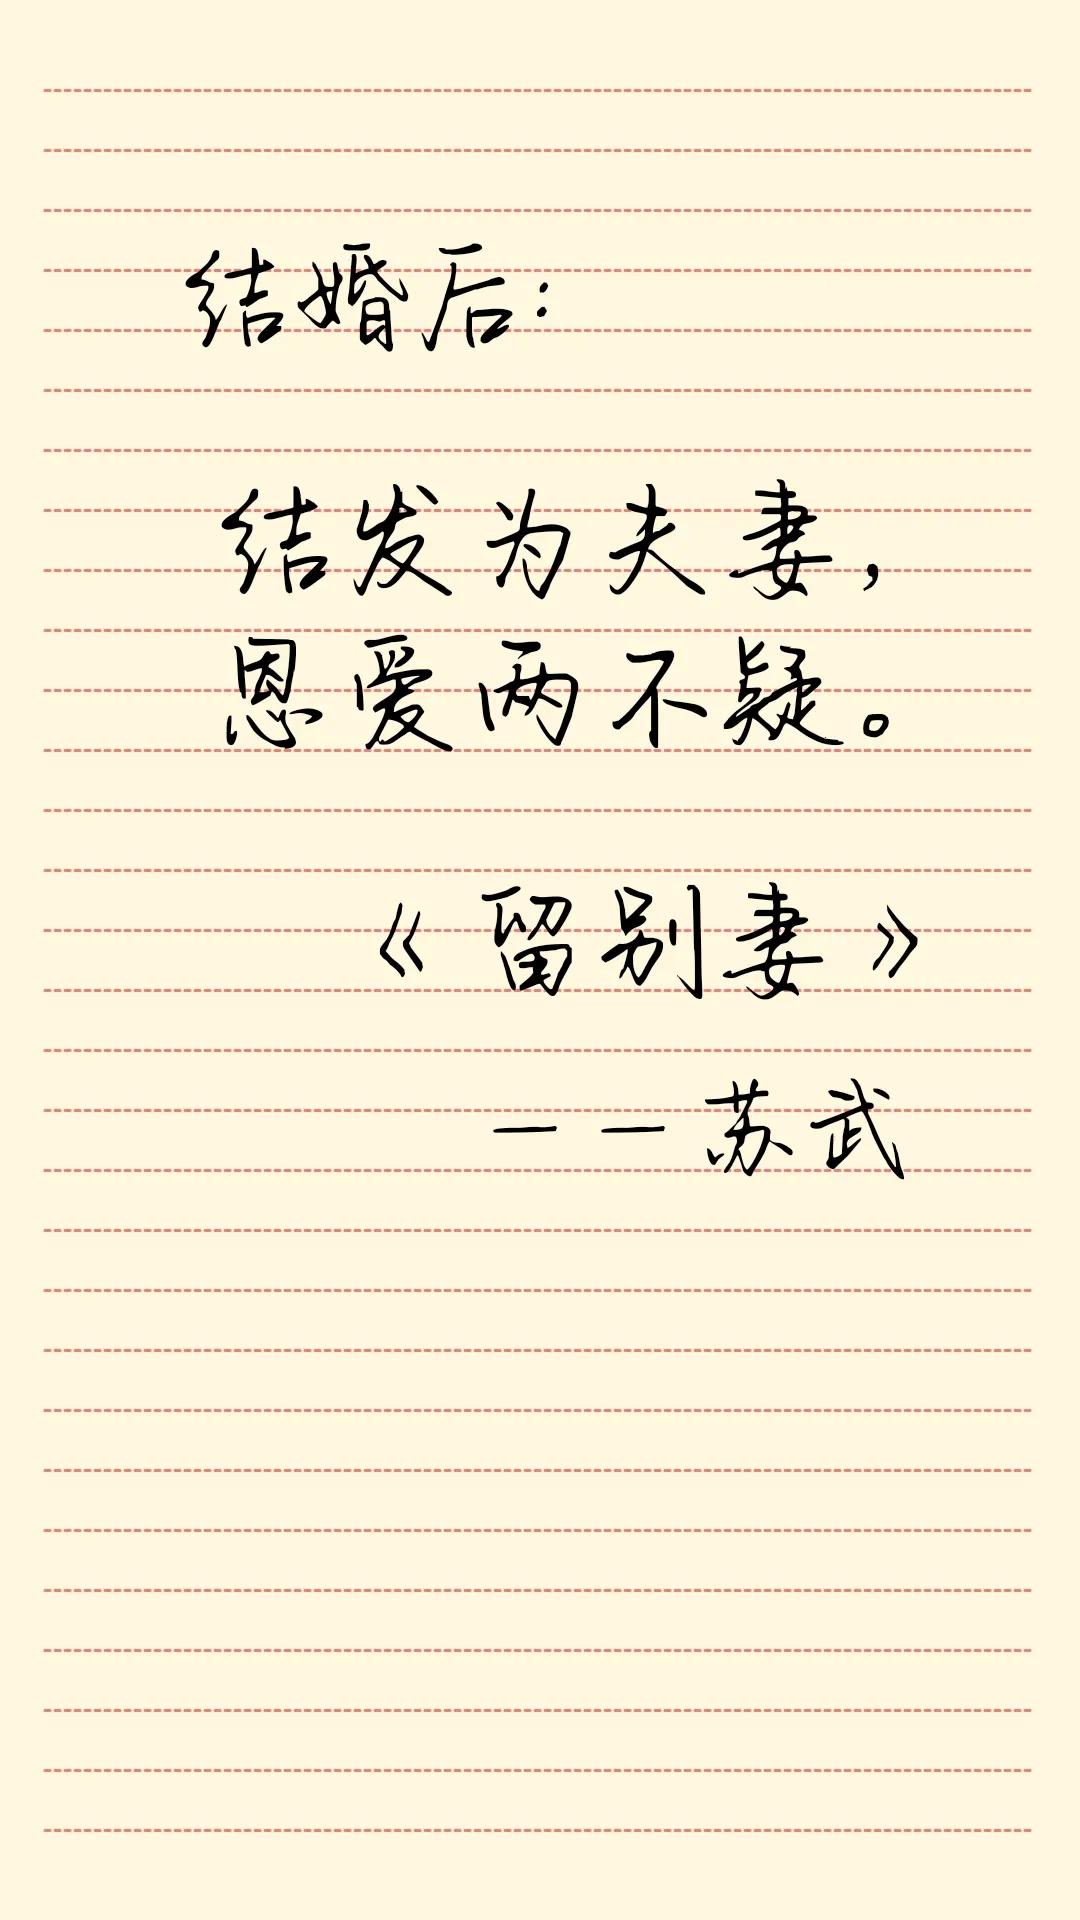 结婚后：
结发为夫妻，
恩爱两不疑。
《留别妻》
——苏武